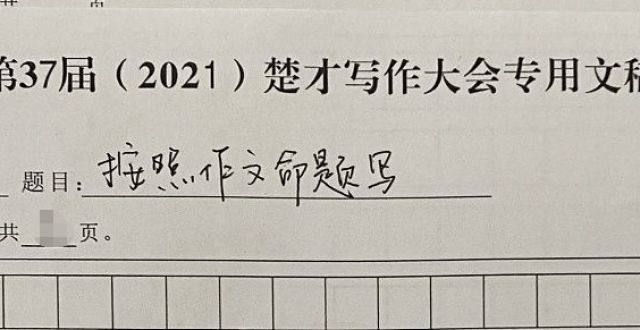 第37届（2021）楚才写作大会专用文稿
题目：按照作文命题写
共 页。